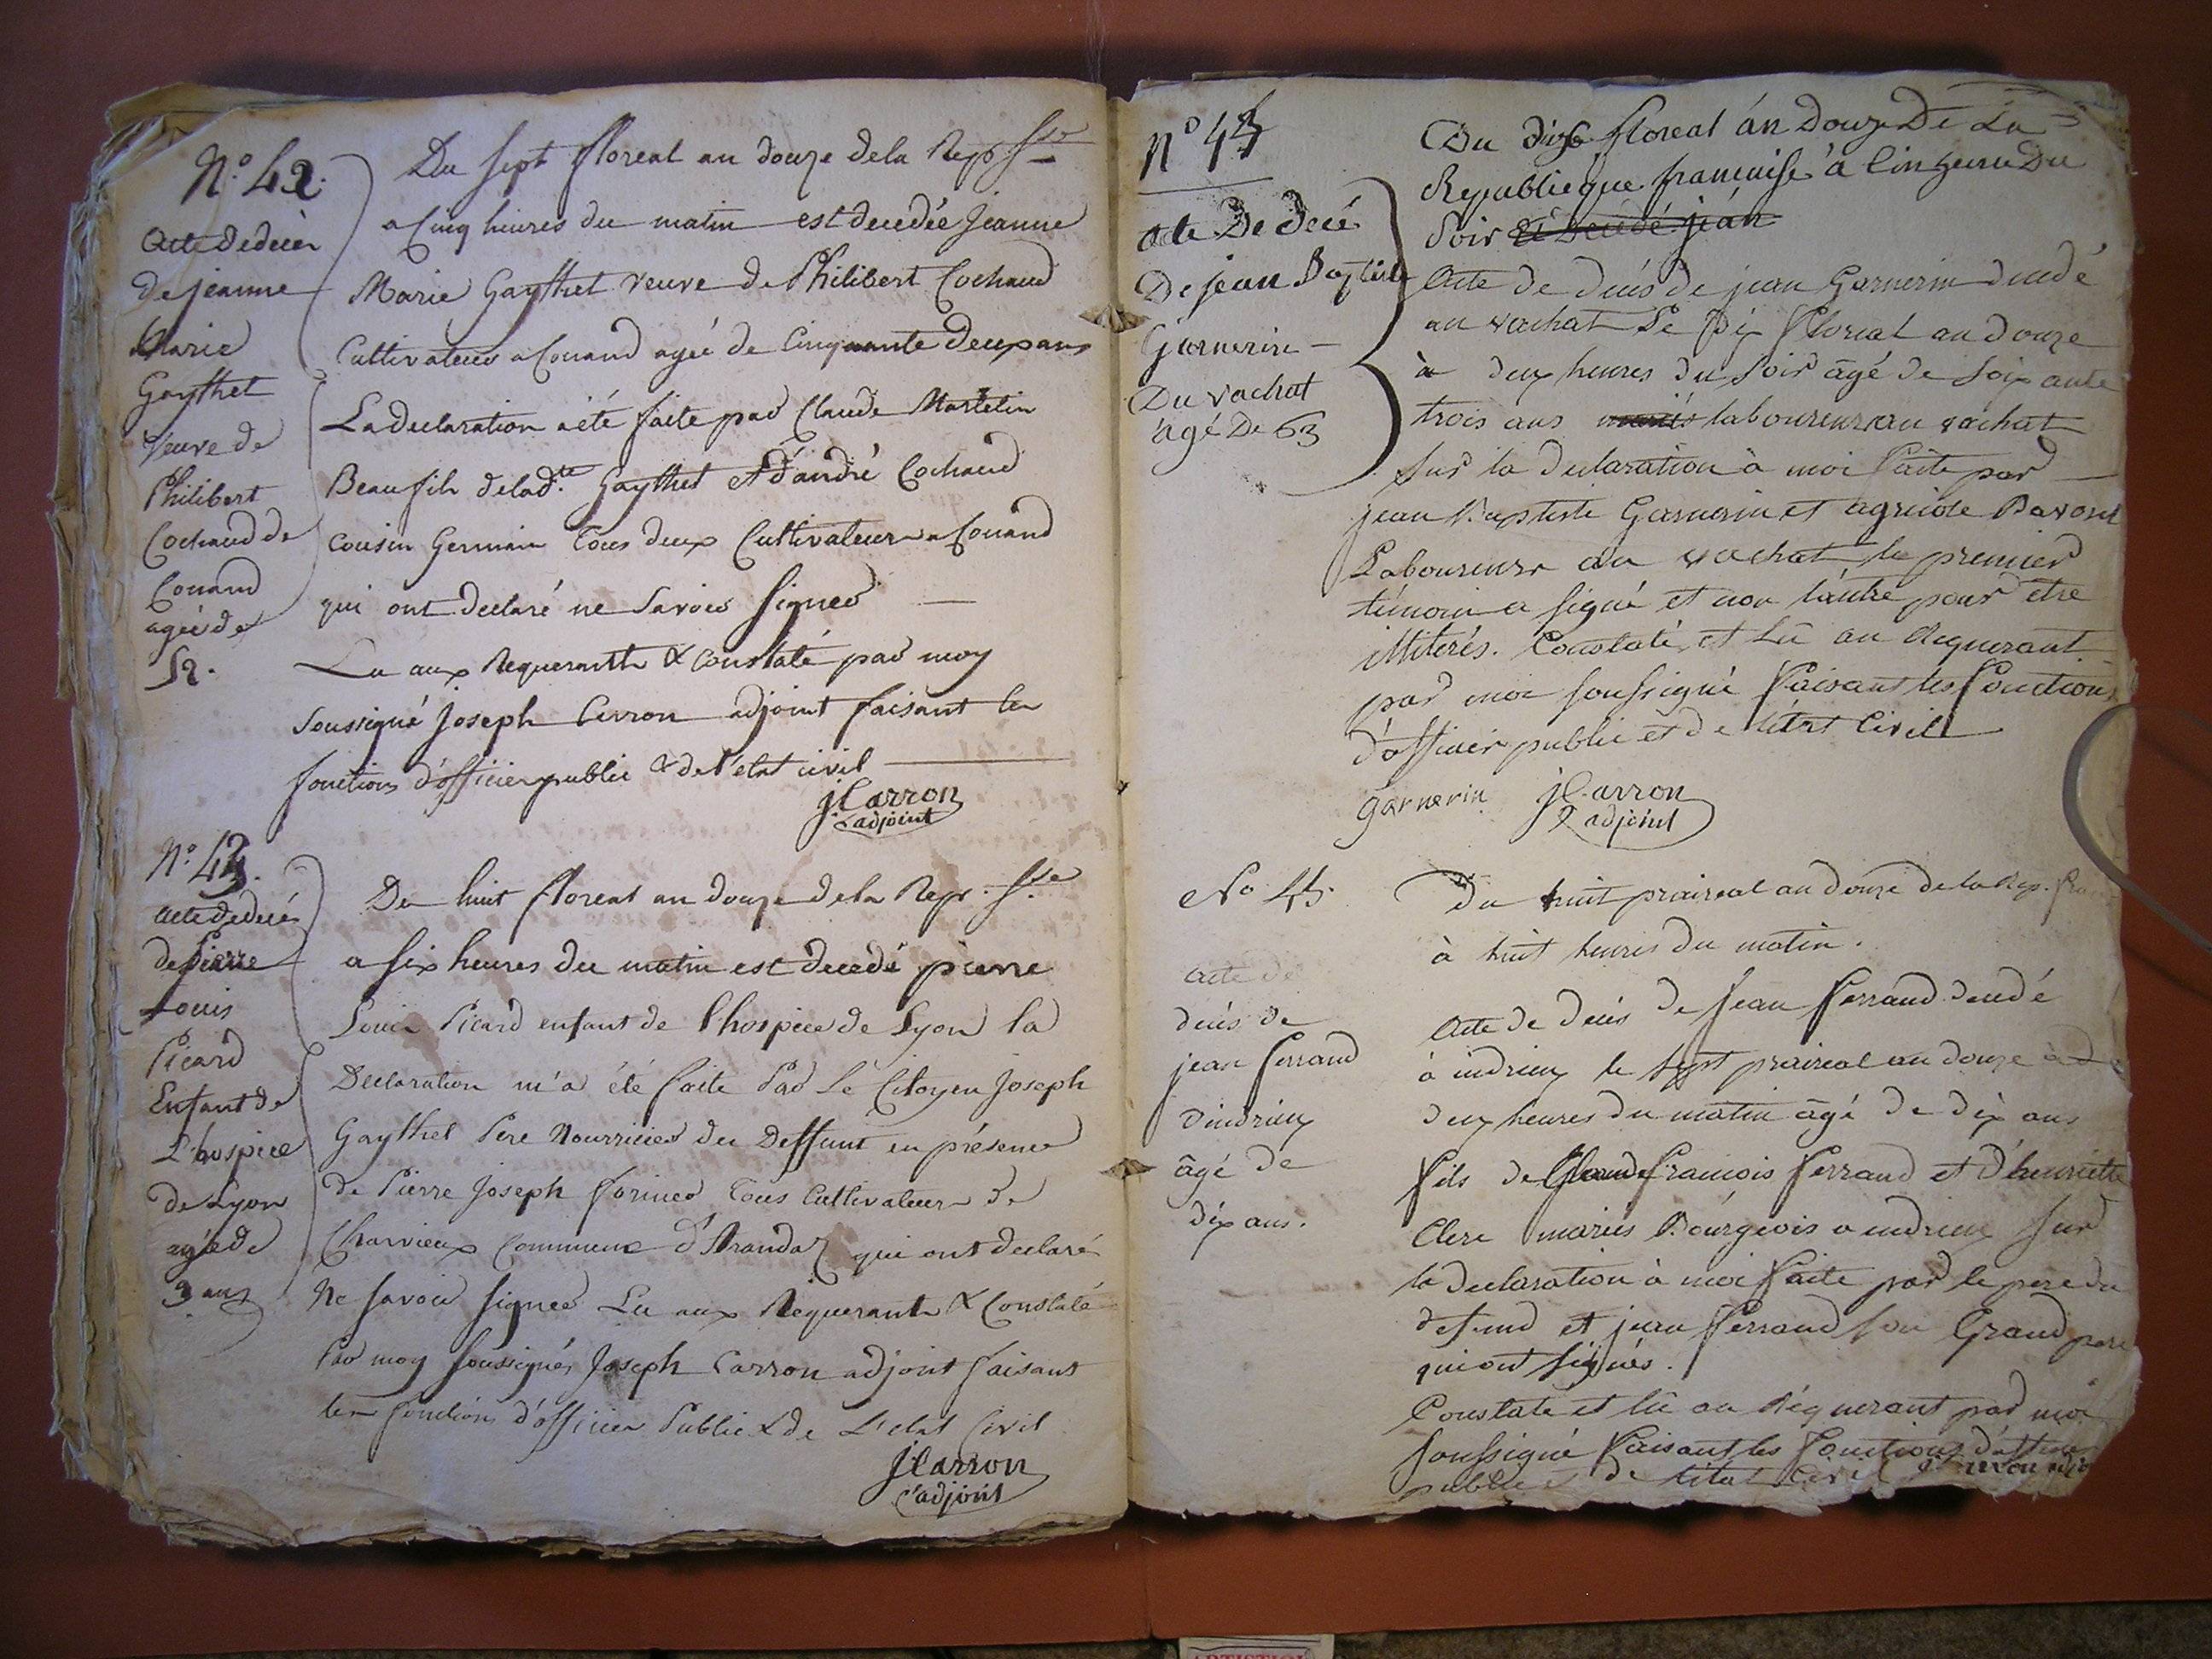 N.° 42.
Acte de décès
de jeanne
Marie
Gaythet
veuve de
Philibert
Cochaud de
Couand
agée de
52.
Du sept floreal an douze de la Rep. f.se
a Cinq heures du matin est decedée Jeanne
Marie Gaythet veuve de Philibert Cochaud
Cultivateur a Couand agée de Cinquante deux ans
La declaration a été faite par Claude Martelin
Beaufils de lad.te Gaythet et d'andré Cochaud
cousin Germain tous deux Cultivateurs a Couand
qui ont declaré ne Savoir Signer
Lu aux Requerants & Constaté par moy
Soussigné Joseph Carron adjoint faisant les
fonctions d'officier public & de l'etat civil
jCarron
adjoint
N.° 43.
acte de decés
de Pierre
Louis
Picard
Enfant de
L'hospice
de Lyon
agé de
3 ans
Du huit floreal an douze de la Repr. f.se
a six heures du matin est decedé pierre
Louis Picard enfant de l'hospice de Lyon la
Declaration m'a été faite Par Le Citoyen Joseph
Gaythet Pere Nourricier du Deffunt en présence
de Pierre Joseph forines Tous Cultivateurs de
Charvieux Commune d'Arandaz qui ont declaré
Ne savoir signer Lu aux Requerants & Constaté
Par moy soussigné, Joseph Carron adjoint faisant
les fonctions d'officier Public & de L'etat Civil
jCarron
adjoint
N° 44
acte De decé
De jean Baptiste
Garnerin
Du vachat
agé De 63
Du dix floreal án Douze De La
Republicque francaise à cinq heure Du
Soir Et Decedé jean
Acte de decés de jean Garnerin decedé
au vachat Le dix floreal an douze
à deux heures du soir âgé de soixante
trois ans mariés laboureur au vachat
sur la declaration à moi faite par
jean Baptiste Garnerin et agricole Bavoset
Laboureurs au vachat le premier
témoin a signé et non l'autre pour etre
illiterés. Constaté et Lû au Requerant
par moi soussigné faisant les fonctions
d'officier public et de l'état Civil
garnerin jCarron
adjoint
No 45.
acte de
decés de
jean ferrand
d'indrieux
âgé de
dix ans.
Du huit praireal an douze de la Rep. fran
à huit heures du matin.
Acte de decés de Jean ferrand decedé
à indrieux le sept praireal an douze à
deux heures du matin âgé de dix ans
fils de Claude françois ferrand et d'henriette
Clerc mariés Bourgeois a indrieux sur
la declaration à moi faite par le pere du
defund et jean ferrand son Grand pere
qui ont signés.
Constaté et lû au Requerant par moi
soussigné faisant les fonctions d'officier
public et de l'état Civil